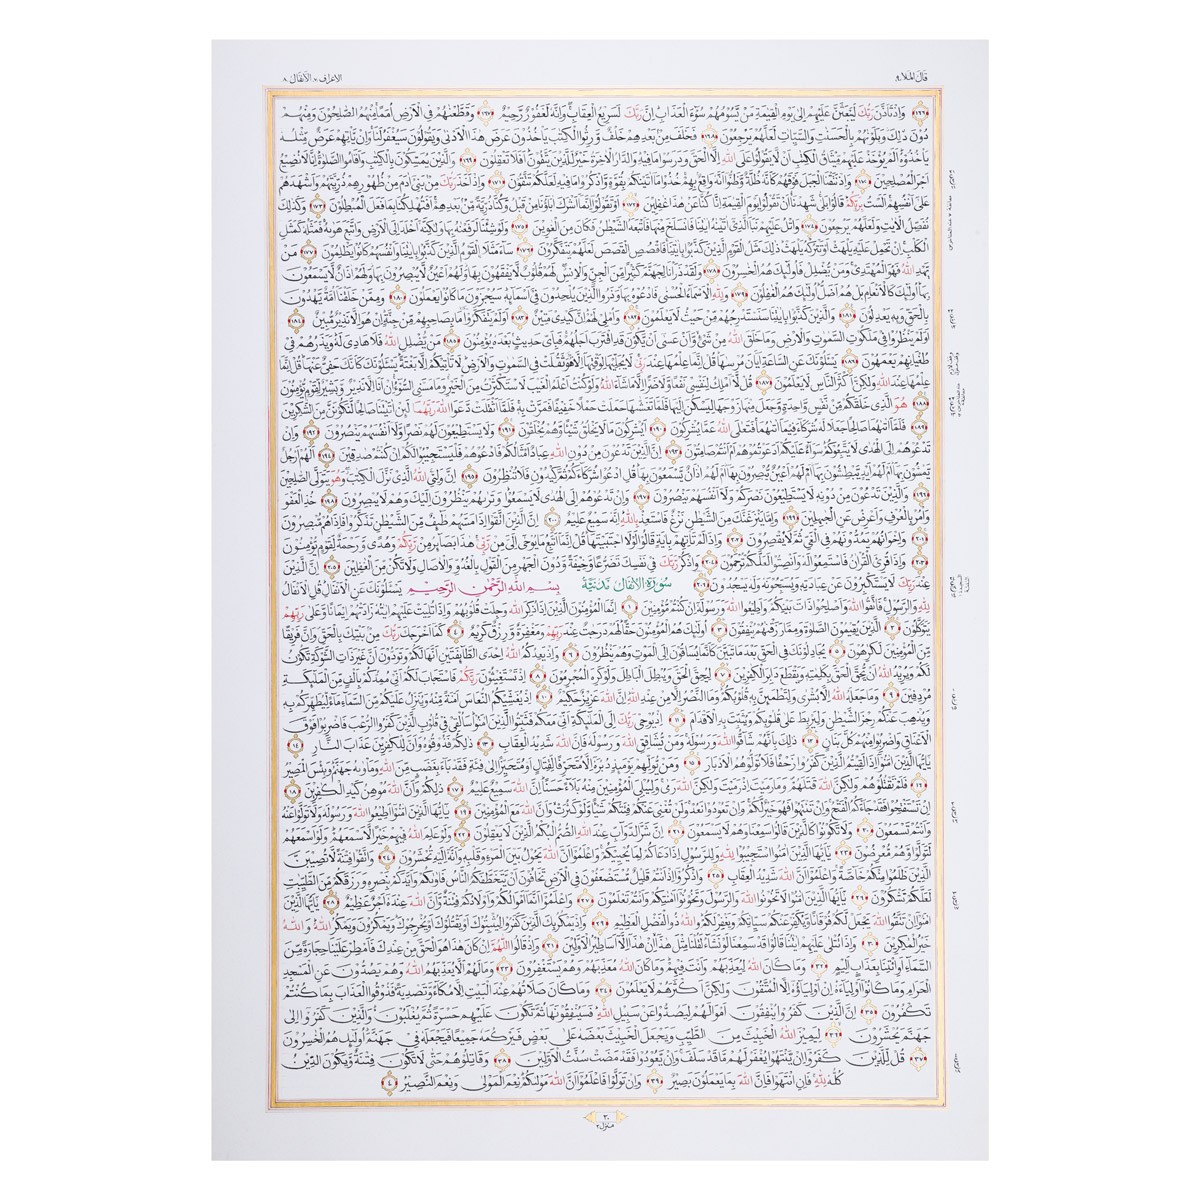 الاعراف ٧ الانفال ٨
قال الملا ٩
﴿١٦٦﴾ واذ تاذن ربك ليبعثن عليهم الى يوم القيمة من يسومهم سوء العذاب ان ربك لسريع العقاب وانه لغفور رحيم ﴿١٦٧﴾ وقطعنهم فى الارض امما منهم الصلحون ومنهم
دون ذلك وبلونهم بالحسنت والسيات لعلهم يرجعون ﴿١٦٨﴾ فخلف من بعدهم خلف ورثوا الكتب ياخذون عرض هذا الادنى ويقولون سيغفر لنا وان ياتهم عرض مثله
ياخذوه الم يؤخذ عليهم ميثاق الكتب ان لا يقولوا على الله الا الحق ودرسوا ما فيه والدار الاخرة خير للذين يتقون افلا تعقلون ﴿١٦٩﴾ والذين يمسكون بالكتب واقاموا الصلوة انا لا نضيع
اجر المصلحين ﴿١٧٠﴾ واذ نتقنا الجبل فوقهم كانه ظلة وظنوا انه واقع بهم خذوا ما اتينكم بقوة واذكروا ما فيه لعلكم تتقون ﴿١٧١﴾ واذ اخذ ربك من بنى ادم من ظهورهم ذريتهم واشهدهم
على انفسهم الست بربكم قالوا بلى شهدنا ان تقولوا يوم القيمة انا كنا عن هذا غفلين ﴿١٧٢﴾ او تقولوا انما اشرك اباؤنا من قبل وكنا ذرية من بعدهم افتهلكنا بما فعل المبطلون ﴿١٧٣﴾ وكذلك
نفصل الايت ولعلهم يرجعون ﴿١٧٤﴾ واتل عليهم نبا الذى اتينه ايتنا فانسلخ منها فاتبعه الشيطن فكان من الغوين ﴿١٧٥﴾ ولو شئنا لرفعنه بها ولكنه اخلد الى الارض واتبع هوىه فمثله كمثل
الكلب ان تحمل عليه يلهث او تتركه يلهث ذلك مثل القوم الذين كذبوا بايتنا فاقصص القصص لعلهم يتفكرون ﴿١٧٦﴾ ساء مثلا القوم الذين كذبوا بايتنا وانفسهم كانوا يظلمون ﴿١٧٧﴾ من
يهد الله فهو المهتدى ومن يضلل فاولئك هم الخسرون ﴿١٧٨﴾ ولقد ذرانا لجهنم كثيرا من الجن والانس لهم قلوب لا يفقهون بها ولهم اعين لا يبصرون بها ولهم اذان لا يسمعون
بها اولئك كالانعام بل هم اضل اولئك هم الغفلون ﴿١٧٩﴾ ولله الاسماء الحسنى فادعوه بها وذروا الذين يلحدون فى اسمائه سيجزون ما كانوا يعملون ﴿١٨٠﴾ وممن خلقنا امة يهدون
بالحق وبه يعدلون ﴿١٨١﴾ والذين كذبوا بايتنا سنستدرجهم من حيث لا يعلمون ﴿١٨٢﴾ واملى لهم ان كيدى متين ﴿١٨٣﴾ اولم يتفكروا ما بصاحبهم من جنة ان هو الا نذير مبين ﴿١٨٤﴾
اولم ينظروا فى ملكوت السموت والارض وما خلق الله من شىء وان عسى ان يكون قد اقترب اجلهم فباى حديث بعده يؤمنون ﴿١٨٥﴾ من يضلل الله فلا هادى له ويذرهم فى
طغيانهم يعمهون ﴿١٨٦﴾ يسئلونك عن الساعة ايان مرسها قل انما علمها عند ربى لا يجليها لوقتها الا هو ثقلت فى السموت والارض لا تاتيكم الا بغتة يسئلونك كانك حفى عنها قل انما
علمها عند الله ولكن اكثر الناس لا يعلمون ﴿١٨٧﴾ قل لا املك لنفسى نفعا ولا ضرا الا ما شاء الله ولو كنت اعلم الغيب لاستكثرت من الخير وما مسنى السوء ان انا الا نذير وبشير لقوم يؤمنون
﴿١٨٨﴾ هو الذى خلقكم من نفس واحدة وجعل منها زوجها ليسكن اليها فلما تغشها حملت حملا خفيفا فمرت به فلما اثقلت دعوا الله ربهما لئن اتيتنا صالحا لنكونن من الشكرين
﴿١٨٩﴾ فلما اتهما صالحا جعلا له شركاء فيما اتهما فتعلى الله عما يشركون ﴿١٩٠﴾ ايشركون ما لا يخلق شيئا وهم يخلقون ﴿١٩١﴾ ولا يستطيعون لهم نصرا ولا انفسهم ينصرون ﴿١٩٢﴾ وان
تدعوهم الى الهدى لا يتبعوكم سواء عليكم ادعوتموهم ام انتم صامتون ﴿١٩٣﴾ ان الذين تدعون من دون الله عباد امثالكم فادعوهم فليستجيبوا لكم ان كنتم صدقين ﴿١٩٤﴾ الهم ارجل
يمشون بها ام لهم ايد يبطشون بها ام لهم اعين يبصرون بها ام لهم اذان يسمعون بها قل ادعوا شركاءكم ثم كيدون فلا تنظرون ﴿١٩٥﴾ ان ولى الله الذى نزل الكتب وهو يتولى الصلحين
﴿١٩٦﴾ والذين تدعون من دونه لا يستطيعون نصركم ولا انفسهم ينصرون ﴿١٩٧﴾ وان تدعوهم الى الهدى لا يسمعوا وترهم ينظرون اليك وهم لا يبصرون ﴿١٩٨﴾ خذ العفو
وامر بالعرف واعرض عن الجهلين ﴿١٩٩﴾ واما ينزغنك من الشيطن نزغ فاستعذ بالله انه سميع عليم ﴿٢٠٠﴾ ان الذين اتقوا اذا مسهم طئف من الشيطن تذكروا فاذا هم مبصرون
﴿٢٠١﴾ واخوانهم يمدونهم فى الغى ثم لا يقصرون ﴿٢٠٢﴾ واذا لم تاتهم باية قالوا لولا اجتبيتها قل انما اتبع ما يوحى الى من ربى هذا بصائر من ربكم وهدى ورحمة لقوم يؤمنون
﴿٢٠٣﴾ واذا قرئ القران فاستمعوا له وانصتوا لعلكم ترحمون ﴿٢٠٤﴾ واذكر ربك فى نفسك تضرعا وخيفة ودون الجهر من القول بالغدو والاصال ولا تكن من الغفلين ﴿٢٠٥﴾ ان الذين
عند ربك لا يستكبرون عن عبادته ويسبحونه وله يسجدون ﴿٢٠٦﴾ سورة الانفال مدنية بسم الله الرحمن الرحيم يسئلونك عن الانفال قل الانفال
لله والرسول فاتقوا الله واصلحوا ذات بينكم واطيعوا الله ورسوله ان كنتم مؤمنين ﴿١﴾ انما المؤمنون الذين اذا ذكر الله وجلت قلوبهم واذا تليت عليهم ايته زادتهم ايمانا وعلى ربهم
يتوكلون ﴿٢﴾ الذين يقيمون الصلوة ومما رزقنهم ينفقون ﴿٣﴾ اولئك هم المؤمنون حقا لهم درجت عند ربهم ومغفرة ورزق كريم ﴿٤﴾ كما اخرجك ربك من بيتك بالحق وان فريقا
من المؤمنين لكرهون ﴿٥﴾ يجادلونك فى الحق بعد ما تبين كانما يساقون الى الموت وهم ينظرون ﴿٦﴾ واذ يعدكم الله احدى الطائفتين انها لكم وتودون ان غير ذات الشوكة تكون
لكم ويريد الله ان يحق الحق بكلمته ويقطع دابر الكفرين ﴿٧﴾ ليحق الحق ويبطل الباطل ولو كره المجرمون ﴿٨﴾ اذ تستغيثون ربكم فاستجاب لكم انى ممدكم بالف من الملئكة
مردفين ﴿٩﴾ وما جعله الله الا بشرى ولتطمئن به قلوبكم وما النصر الا من عند الله ان الله عزيز حكيم ﴿١٠﴾ اذ يغشيكم النعاس امنة منه وينزل عليكم من السماء ماء ليطهركم به
ويذهب عنكم رجز الشيطن وليربط على قلوبكم ويثبت به الاقدام ﴿١١﴾ اذ يوحى ربك الى الملئكة انى معكم فثبتوا الذين امنوا سالقى فى قلوب الذين كفروا الرعب فاضربوا فوق
الاعناق واضربوا منهم كل بنان ﴿١٢﴾ ذلك بانهم شاقوا الله ورسوله ومن يشاقق الله ورسوله فان الله شديد العقاب ﴿١٣﴾ ذلكم فذوقوه وان للكفرين عذاب النار ﴿١٤﴾
يايها الذين امنوا اذا لقيتم الذين كفروا زحفا فلا تولوهم الادبار ﴿١٥﴾ ومن يولهم يومئذ دبره الا متحرفا لقتال او متحيزا الى فئة فقد باء بغضب من الله وماوىه جهنم وبئس المصير
﴿١٦﴾ فلم تقتلوهم ولكن الله قتلهم وما رميت اذ رميت ولكن الله رمى وليبلى المؤمنين منه بلاء حسنا ان الله سميع عليم ﴿١٧﴾ ذلكم وان الله موهن كيد الكفرين ﴿١٨﴾
ان تستفتحوا فقد جاءكم الفتح وان تنتهوا فهو خير لكم وان تعودوا نعد ولن تغنى عنكم فئتكم شيئا ولو كثرت وان الله مع المؤمنين ﴿١٩﴾ يايها الذين امنوا اطيعوا الله ورسوله ولا تولوا عنه
وانتم تسمعون ﴿٢٠﴾ ولا تكونوا كالذين قالوا سمعنا وهم لا يسمعون ﴿٢١﴾ ان شر الدواب عند الله الصم البكم الذين لا يعقلون ﴿٢٢﴾ ولو علم الله فيهم خيرا لاسمعهم ولو اسمعهم
لتولوا وهم معرضون ﴿٢٣﴾ يايها الذين امنوا استجيبوا لله وللرسول اذا دعاكم لما يحييكم واعلموا ان الله يحول بين المرء وقلبه وانه اليه تحشرون ﴿٢٤﴾ واتقوا فتنة لا تصيبن
الذين ظلموا منكم خاصة واعلموا ان الله شديد العقاب ﴿٢٥﴾ واذكروا اذ انتم قليل مستضعفون فى الارض تخافون ان يتخطفكم الناس فاوىكم وايدكم بنصره ورزقكم من الطيبت
لعلكم تشكرون ﴿٢٦﴾ يايها الذين امنوا لا تخونوا الله والرسول وتخونوا امنتكم وانتم تعلمون ﴿٢٧﴾ واعلموا انما اموالكم واولادكم فتنة وان الله عنده اجر عظيم ﴿٢٨﴾ يايها الذين
امنوا ان تتقوا الله يجعل لكم فرقانا ويكفر عنكم سياتكم ويغفر لكم والله ذو الفضل العظيم ﴿٢٩﴾ واذ يمكر بك الذين كفروا ليثبتوك او يقتلوك او يخرجوك ويمكرون ويمكر الله والله
خير المكرين ﴿٣٠﴾ واذا تتلى عليهم ايتنا قالوا قد سمعنا لو نشاء لقلنا مثل هذا ان هذا الا اساطير الاولين ﴿٣١﴾ واذ قالوا اللهم ان كان هذا هو الحق من عندك فامطر علينا حجارة من
السماء او ائتنا بعذاب اليم ﴿٣٢﴾ وما كان الله ليعذبهم وانت فيهم وما كان الله معذبهم وهم يستغفرون ﴿٣٣﴾ وما لهم الا يعذبهم الله وهم يصدون عن المسجد
الحرام وما كانوا اولياءه ان اولياؤه الا المتقون ولكن اكثرهم لا يعلمون ﴿٣٤﴾ وما كان صلاتهم عند البيت الا مكاء وتصدية فذوقوا العذاب بما كنتم
تكفرون ﴿٣٥﴾ ان الذين كفروا ينفقون اموالهم ليصدوا عن سبيل الله فسينفقونها ثم تكون عليهم حسرة ثم يغلبون والذين كفروا الى
جهنم يحشرون ﴿٣٦﴾ ليميز الله الخبيث من الطيب ويجعل الخبيث بعضه على بعض فيركمه جميعا فيجعله فى جهنم اولئك هم الخسرون
﴿٣٧﴾ قل للذين كفروا ان ينتهوا يغفر لهم ما قد سلف وان يعودوا فقد مضت سنت الاولين ﴿٣٨﴾ وقاتلوهم حتى لا تكون فتنة ويكون الدين
كله لله فان انتهوا فان الله بما يعملون بصير ﴿٣٩﴾ وان تولوا فاعلموا ان الله مولىكم نعم المولى ونعم النصير ﴿٤٠﴾
٣٠
منزل ٢